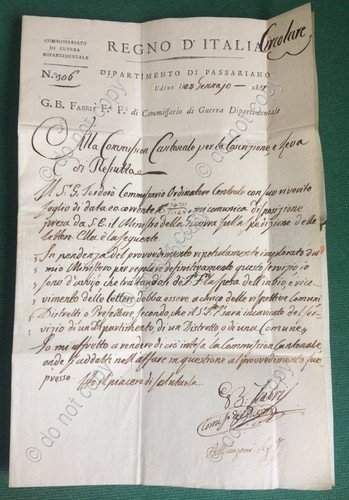 COMMISSARIATO
DI GUERRA
DIPARTIMENTALE
N.º 906
REGNO D'ITALIA
Circolare
DIPARTIMENTO DI PASSARIANO
Udine li 28 Gennajo 1807
G. B. FABRIS F. F. di Commissario di Guerra Dipartimentale
Alla Commission Cantonale per la Coscrizione, e Leva
di Resiutta
Il S. G. Isidoro Commissario Ordinatore Centrale con suo riverito
foglio di data corrente mi comunica disposizione
presa da S. E. il Ministro della Guerra sulla spedizione delle
lettere. Ella è la seguente.
In pendenza del provvedimento ripetutamente implorato dal
mio Ministero per regolare definitivamente questo servizio
sono d'avviso che trattandosi di tassa dell'invio e rice-
vimento delle lettere debba essere a carico delle rispettive Comuni
Distretti o Prefetture secondo che il sarà incaricato del ser-
vizio di un Dipartimento, di un Distretto o di una Comune.
Io mi affretto a rendere di ciò intesa la Commission Cantonale
onde si addatti nell'affare in questione al provvedimento sue-
spresso
Ho il piacere di salutarla.
G B Fabris
Manzoni
do not copy